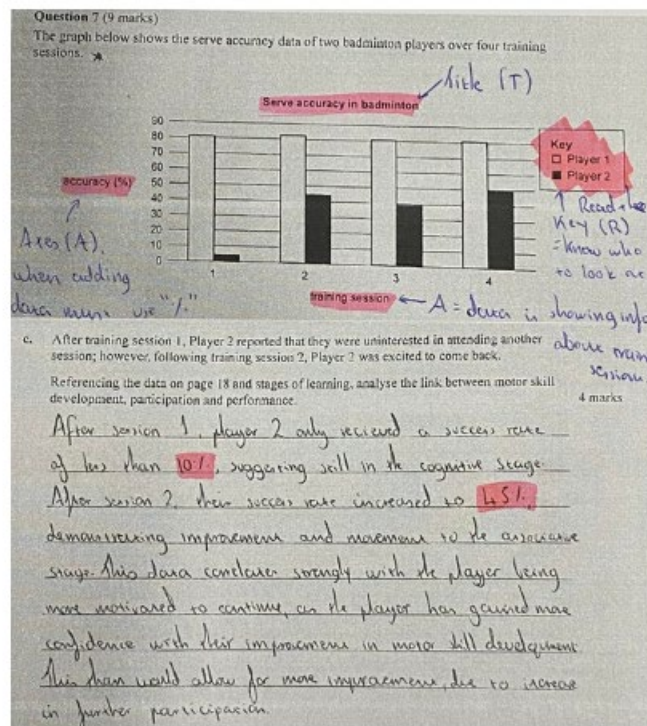 Question 7 (9 marks)
The graph below shows the serve accuracy data of two badminton players over four training
sessions. *
Title (T)
Serve accuracy in badminton
90
80
70
60
50
40
30
20
10
0
accuracy (%)
Key
Player 1
Player 2
Axes (A).
when adding
data must use "%"
Read the
Key (R)
= know who
to look at
1 2 3 4
training session
A = data is showing info
about train
sessions
c. After training session 1, Player 2 reported that they were uninterested in attending another
session; however, following training session 2, Player 2 was excited to come back.
Referencing the data on page 18 and stages of learning, analyse the link between motor skill
development, participation and performance.
4 marks
After session 1, player 2 only recieved a success rate
of less than 10%, suggesting skill in the cognitive stage.
After session 2, their success rate increased to 45%,
demonstrating improvement and movement to the associative
stage. This data correlates strongly with the player being
more motivated to continue, as the player has gained more
confidence with their improvement in motor skill development
This then would allow for more improvement, due to increase
in further participation.